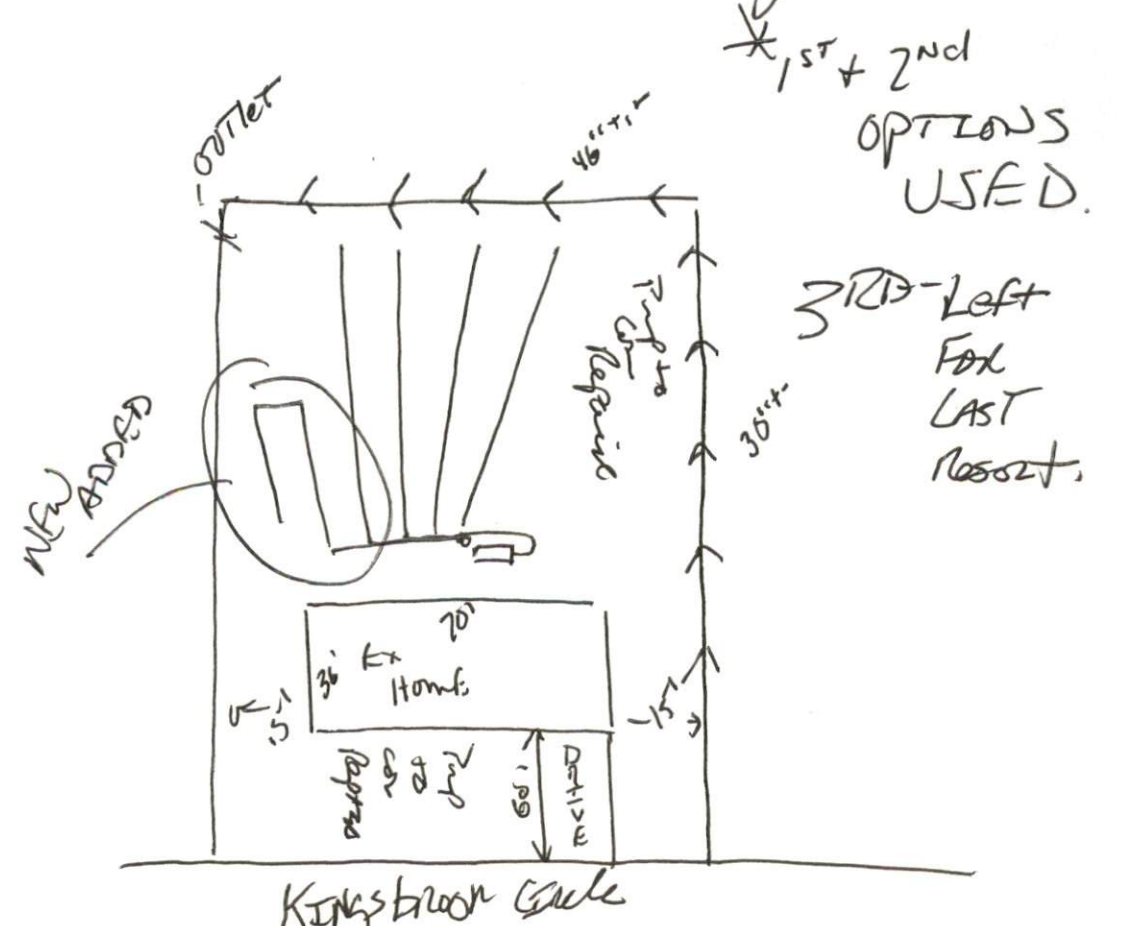 1ST + 2Nd
OPTIONS
USED.
3RD - Left
For
LAST
Resort.
- outlet
46"+,-
30"+-
Pump to
Repair
NEW
ADDED
70'
36'
Ex
Home
15'
15'
Pump
to
60'
DRIVE
Kingsbrook Circle